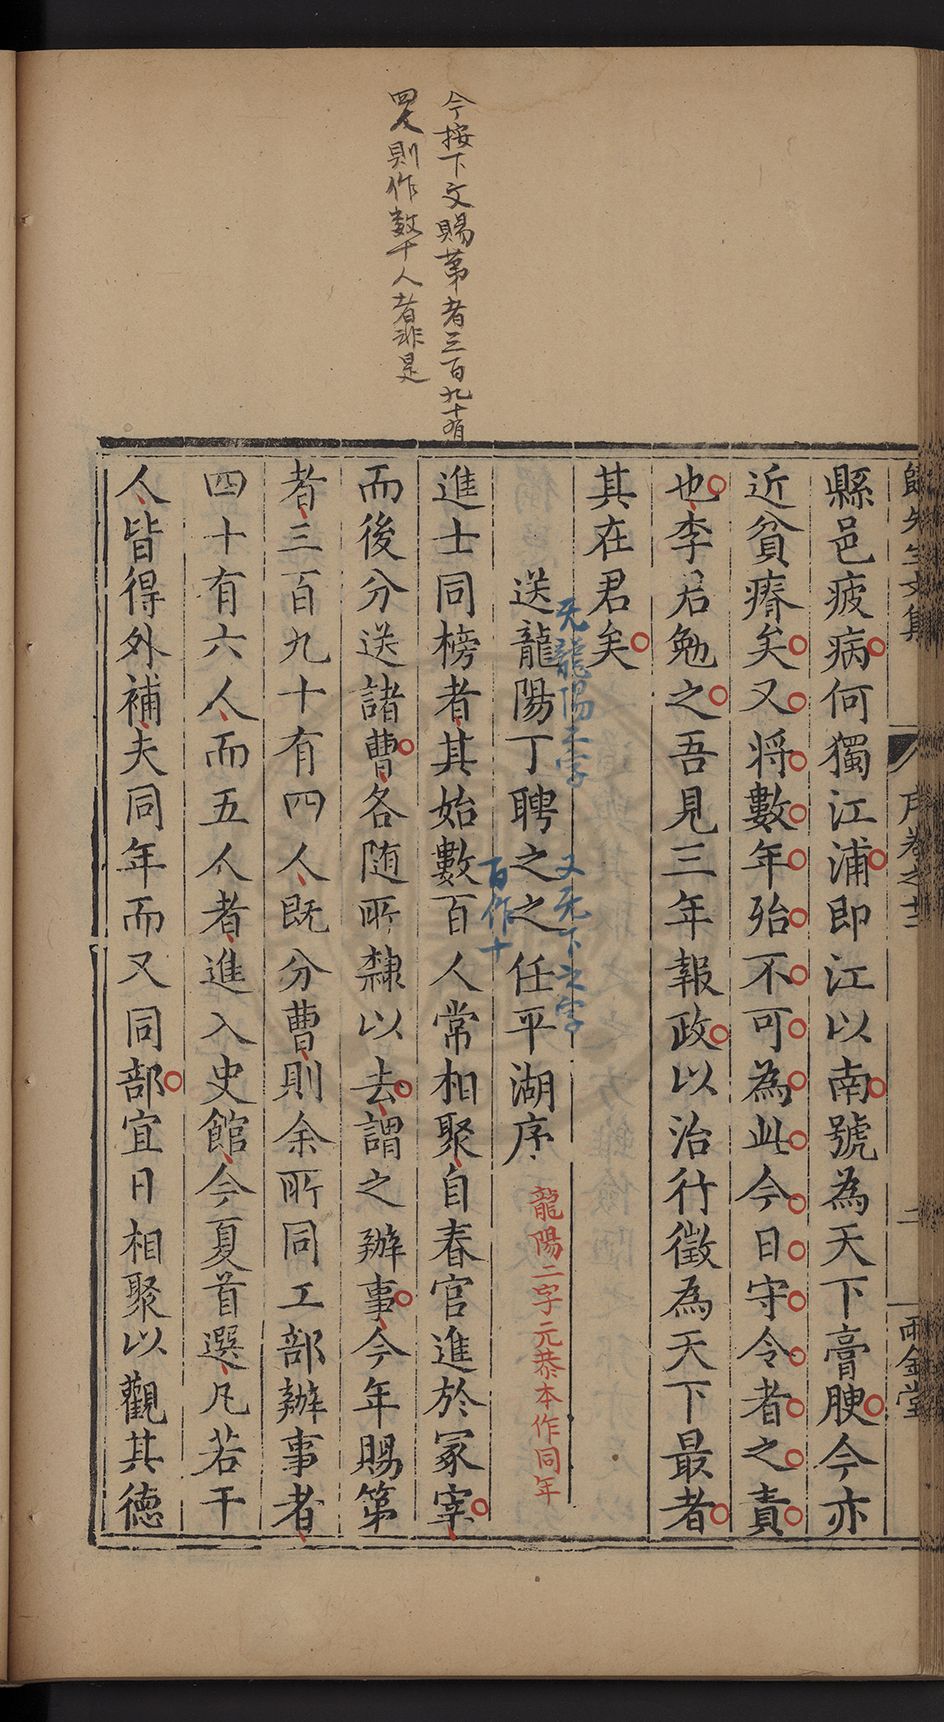 今按下文賜第者三百九十有
四人則作数十人者非是
歸先生文集
序卷之十二
二
雨金堂
縣邑疲病何獨江浦即江以南號為天下膏腴今亦
近貧瘠矣又将數年殆不可為此今日守令者之責
也李君勉之吾見三年報政以治行徵為天下最者
其在君矣
无龍陽二字
又无下之字
送龍陽丁聘之之任平湖序
龍陽二字元恭本作同年
百作十
進士同榜者其始數百人常相聚自春官進於冢宰
而後分送諸曹各随所隸以去謂之辦事今年賜第
者三百九十有四人既分曹則余所同工部辦事者
四十有六人而五人者進入史館今夏首選凡若干
人皆得外補夫同年而又同部宜日相聚以觀其德